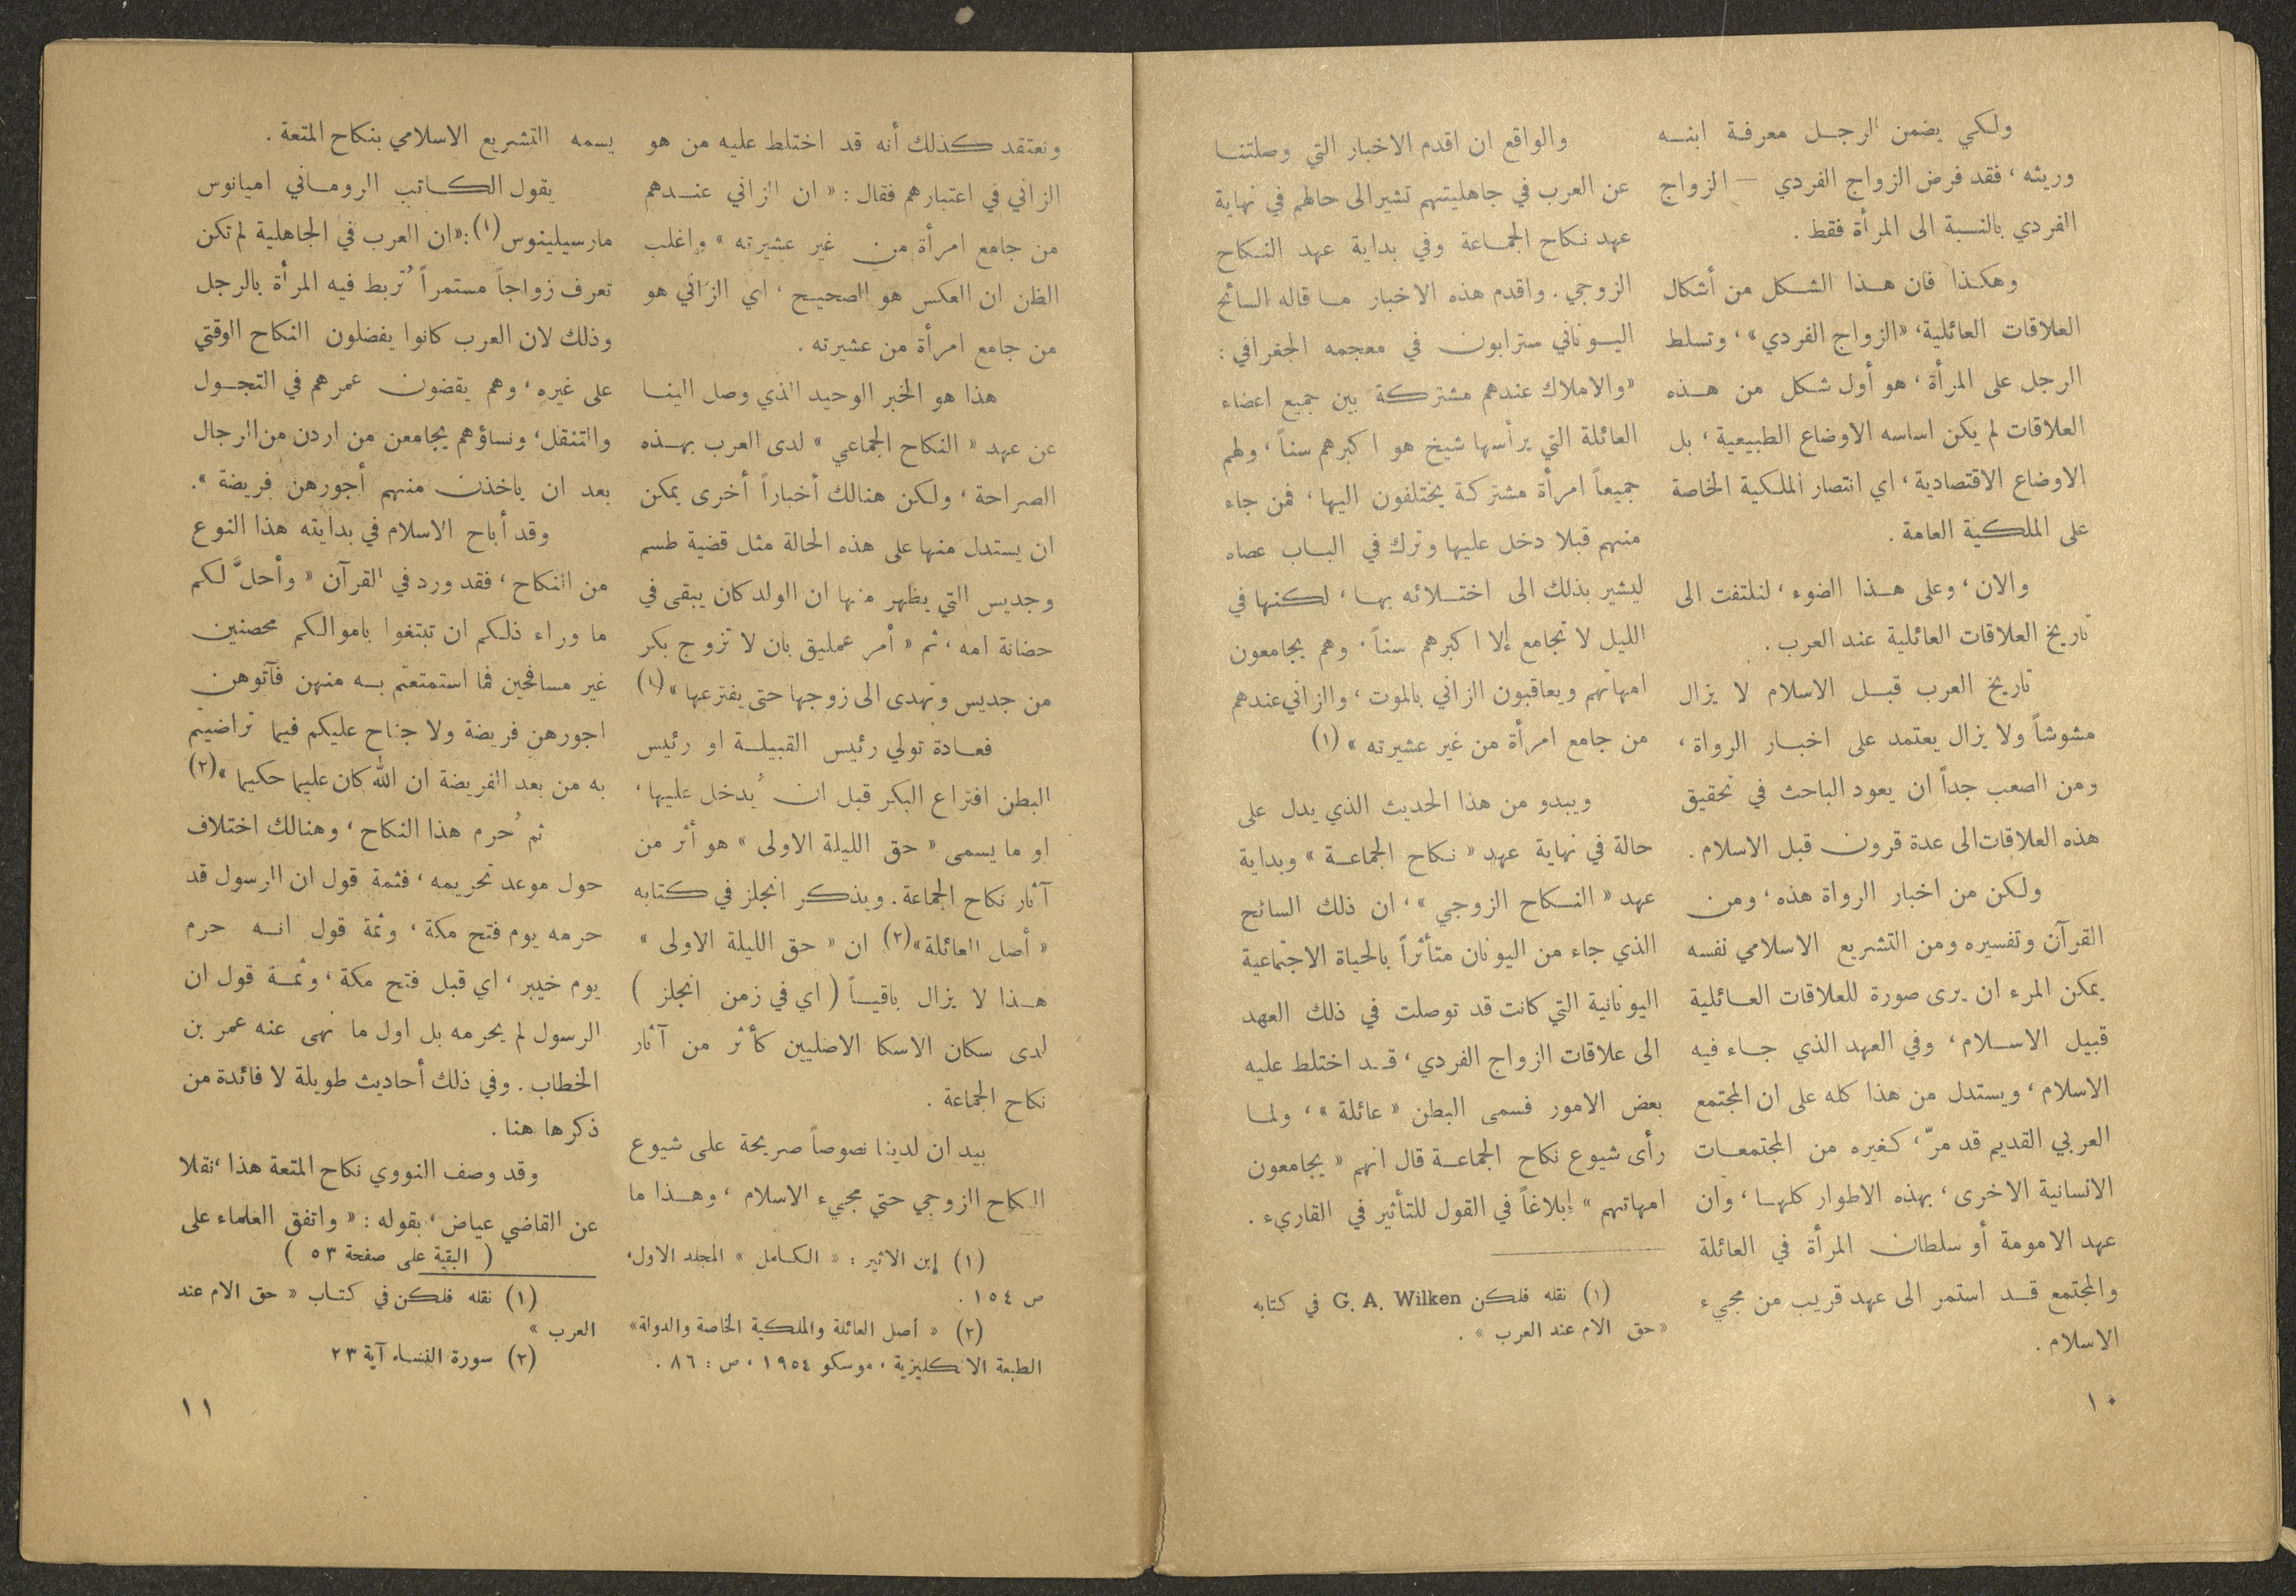 ولكي يضمن الرجل معرفة ابنه
وريثه ، فقد فرض الزواج الفردي — الزواج
الفردي بالنسبة الى المرأة فقط .
وهكذا فان هذا الشكل من أشكال
العلاقات العائلية، «الزواج الفردي» ، وتسلط
الرجل على المرأة ، هو أول شكل من هذه
العلاقات لم يكن اساسه الاوضاع الطبيعية ، بل
الاوضاع الاقتصادية ، اي انتصار الملكية الخاصة
على الملكية العامة .
والان ، وعلى هذا الضوء ، لنلتفت الى
تاريخ العلاقات العائلية عند العرب .
تاريخ العرب قبل الاسلام لا يزال
مشوشاً ولا يزال يعتمد على اخبار الرواة ،
ومن الصعب جداً ان يعود الباحث في تحقيق
هذه العلاقات الى عدة قرون قبل الاسلام .
ولكن من اخبار الرواة هذه ، ومن
القرآن وتفسيره ومن التشريع الاسلامي نفسه
يمكن المرء ان يرى صورة للعلاقات العائلية
قبيل الاسلام ، وفي العهد الذي جاء فيه
الاسلام ، ويستدل من هذا كله على ان المجتمع
العربي القديم قد مرّ ، كغيره من المجتمعات
الانسانية الاخرى ، بهذه الاطوار كلها ، وان
عهد الامومة أو سلطان المرأة في العائلة
والمجتمع قد استمر الى عهد قريب من مجيء
الاسلام .
والواقع ان اقدم الاخبار التي وصلتنا
عن العرب في جاهليتهم تشير الى حالهم في نهاية
عهد نكاح الجماعة وفي بداية عهد النكاح
الزوجي . واقدم هذه الاخبار ما قاله السائح
اليوناني سترابون في معجمه الجغرافي :
«والاملاك عندهم مشتركة بين جميع اعضاء
العائلة التي يرأسها شيخ هو اكبرهم سناً ، ولهم
جميعاً امرأة مشتركة يختلفون اليها ، فمن جاء
منهم قبلا دخل عليها وترك في الباب عصاه
ليشير بذلك الى اختلائه بها ، لكنها في
الليل لا تجامع إلا اكبرهم سناً ، وهم يجامعون
امهاتهم ويعاقبون الزاني بالموت ، والزاني عندهم
من جامع امرأة من غير عشيرته » (١)
ويبدو من هذا الحديث الذي يدل على
حالة في نهاية عهد « نكاح الجماعة » وبداية
عهد « النكاح الزوجي » ، ان ذلك السائح
الذي جاء من اليونان متأثراً بالحياة الاجتماعية
اليونانية التي كانت قد توصلت في ذلك العهد
الى علاقات الزواج الفردي ، قد اختلط عليه
بعض الامور فسمى البطن « عائلة » ، ولما
رأى شيوع نكاح الجماعة قال انهم « يجامعون
امهاتهم » إبلاغاً في القول للتأثير في القاريء .
(١) نقله فلكن G. A. Wilken في كتابه
«حق الام عند العرب » .
١٠
ونعتقد كذلك أنه قد اختلط عليه من هو
الزاني في اعتبارهم فقال : « ان الزاني عندهم
من جامع امرأة من غير عشيرته » واغلب
الظن ان العكس هو الصحيح ، اي الزاني هو
من جامع امرأة من عشيرته .
هذا هو الخبر الوحيد الذي وصل الينا
عن عهد « النكاح الجماعي » لدى العرب بهذه
الصراحة ، ولكن هنالك أخباراً أخرى يمكن
ان يستدل منها على هذه الحالة مثل قضية طسم
وجديس التي يظهر منها ان الولد كان يبقى في
حضانة امه ، ثم « أمر عمليق بان لا تزوج بكر
من جديس وتهدى الى زوجها حتى يفترعها» (١)
فعادة تولي رئيس القبيلة او رئيس
البطن افتراع البكر قبل ان يُدخل عليها ،
او ما يسمى « حق الليلة الاولى » هو أثر من
آثار نكاح الجماعة . ويذكر انجلز في كتابه
« أصل العائلة»(٢) ان « حق الليلة الاولى »
هذا لا يزال باقياً ( اي في زمن انجلز )
لدى سكان الاسكا الاصليين كأثر من آثار
نكاح الجماعة .
بيد ان لدينا نصوصاً صريحة على شيوع
النكاح الزوجي حتي مجيء الاسلام ، وهذا ما
(١) إبن الاثير : « الكامل » المجلد الاول،
ص ١٥٤ .
(٢) « أصل العائلة والملكية الخاصة والدولة»
الطبعة الانكليزية ، موسكو ١٩٥٤ ، ص : ٨٦ .
يسمه التشريع الاسلامي بنكاح المتعة .
يقول الكاتب الروماني اميانوس
مارسيلينوس(١) :«ان العرب في الجاهلية لم تكن
تعرف زواجاً مستمراً تُربط فيه المرأة بالرجل
وذلك لان العرب كانوا يفضلون النكاح الوقتي
على غيره ، وهم يقضون عمرهم في التجول
والتنقل، ونساؤهم يجامعن من اردن من الرجال
بعد ان ياخذن منهم أجورهن فريضة ».
وقد أباح الاسلام في بدايته هذا النوع
من النكاح ، فقد ورد في القرآن « وأحلَّ لكم
ما وراء ذلكم ان تبتغوا باموالكم محصنين
غير مسافحين فما استمتعتم به منهن فآتوهن
اجورهن فريضة ولا جناح عليكم فيما تراضيتم
به من بعد الفريضة ان الله كان عليما حكيما »(٢)
ثم حُرم هذا النكاح ، وهنالك اختلاف
حول موعد تحريمه ، فثمة قول ان الرسول قد
حرمه يوم فتح مكة ، وثمة قول انه حرم
يوم خيبر ، اي قبل فتح مكة ، وثمة قول ان
الرسول لم يحرمه بل اول ما نهى عنه عمر بن
الخطاب . وفي ذلك أحاديث طويلة لا فائدة من
ذكرها هنا .
وقد وصف النووي نكاح المتعة هذا ،نقلا
عن القاضي عياض ، بقوله : « واتفق العلماء على
( البقية على صفحة ٥٣ )
(١) نقله فلكن في كتاب « حق الام عند
العرب »
(٢) سورة النساء آية ٢٣
١١